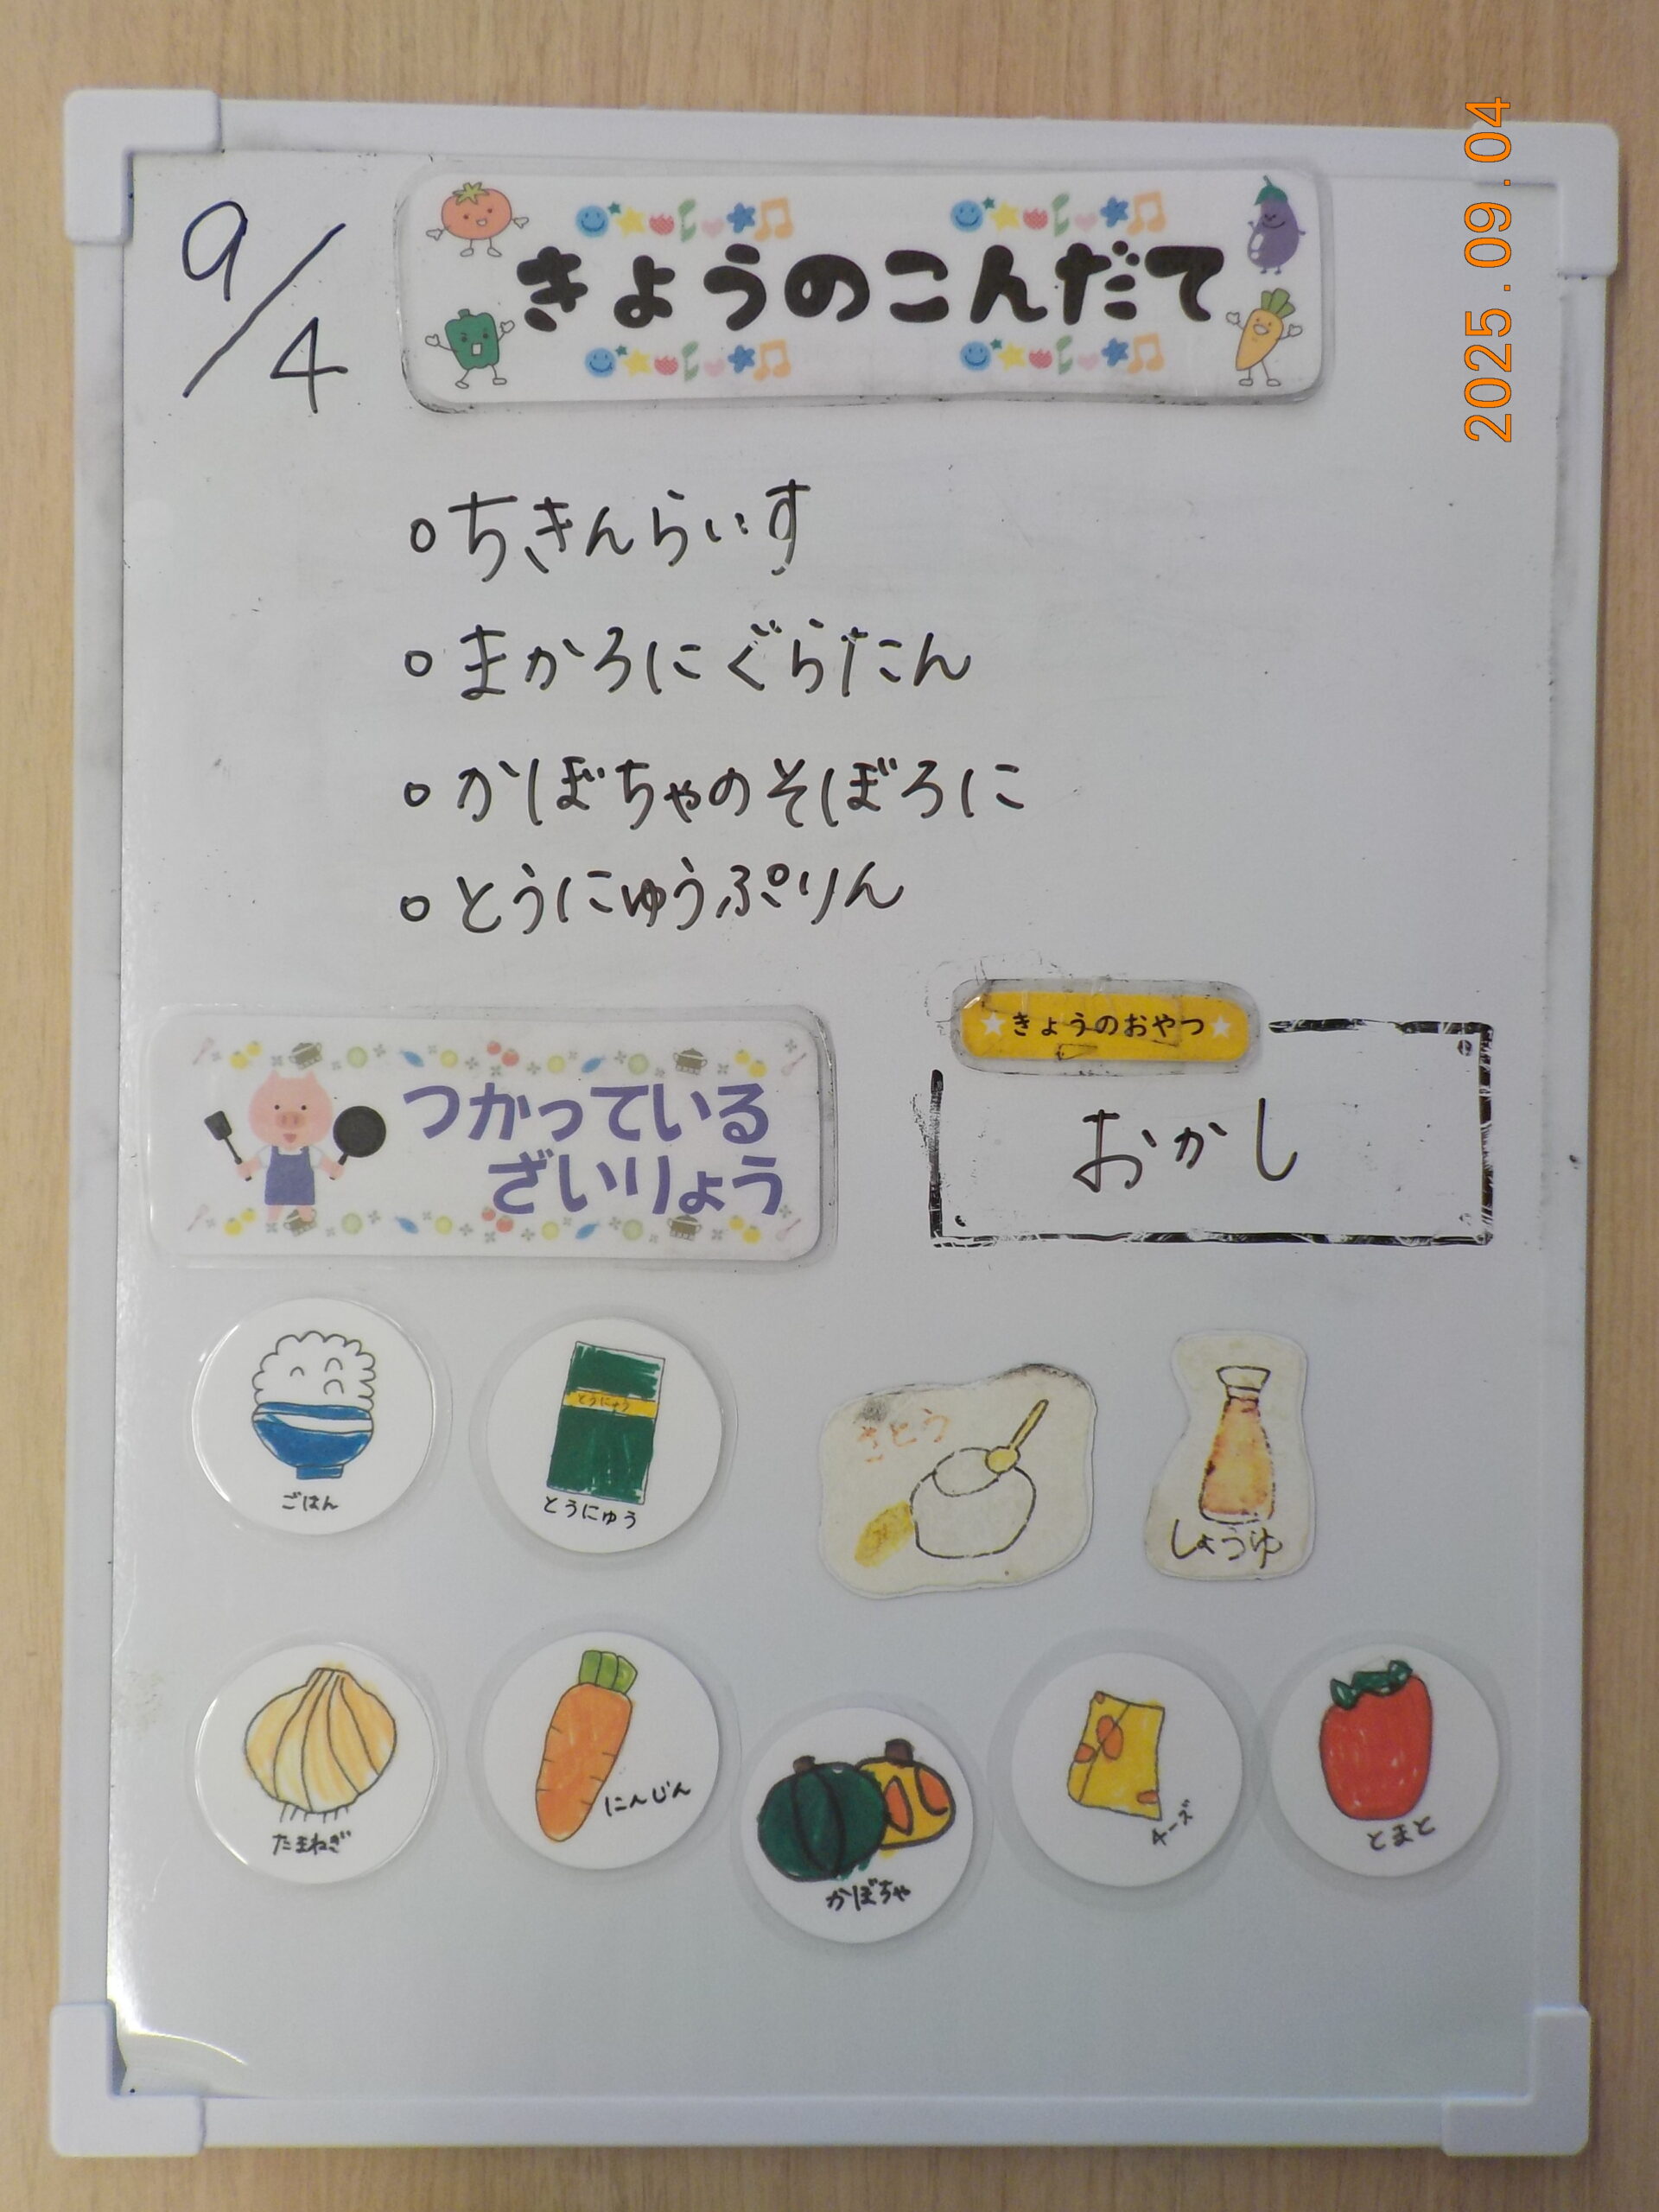 9/4
きょうのこんだて
2025.09.04
ちきんらいす
まかろにぐらたん
かぼちゃのそぼろに
とうにゅうぷりん
きょうのおやつ
おかし
つかっている
ざいりょう
ごはん
とうにゅう
とうにゅう
さとう
しょうゆ
たまねぎ
にんじん
かぼちゃ
チーズ
とまと